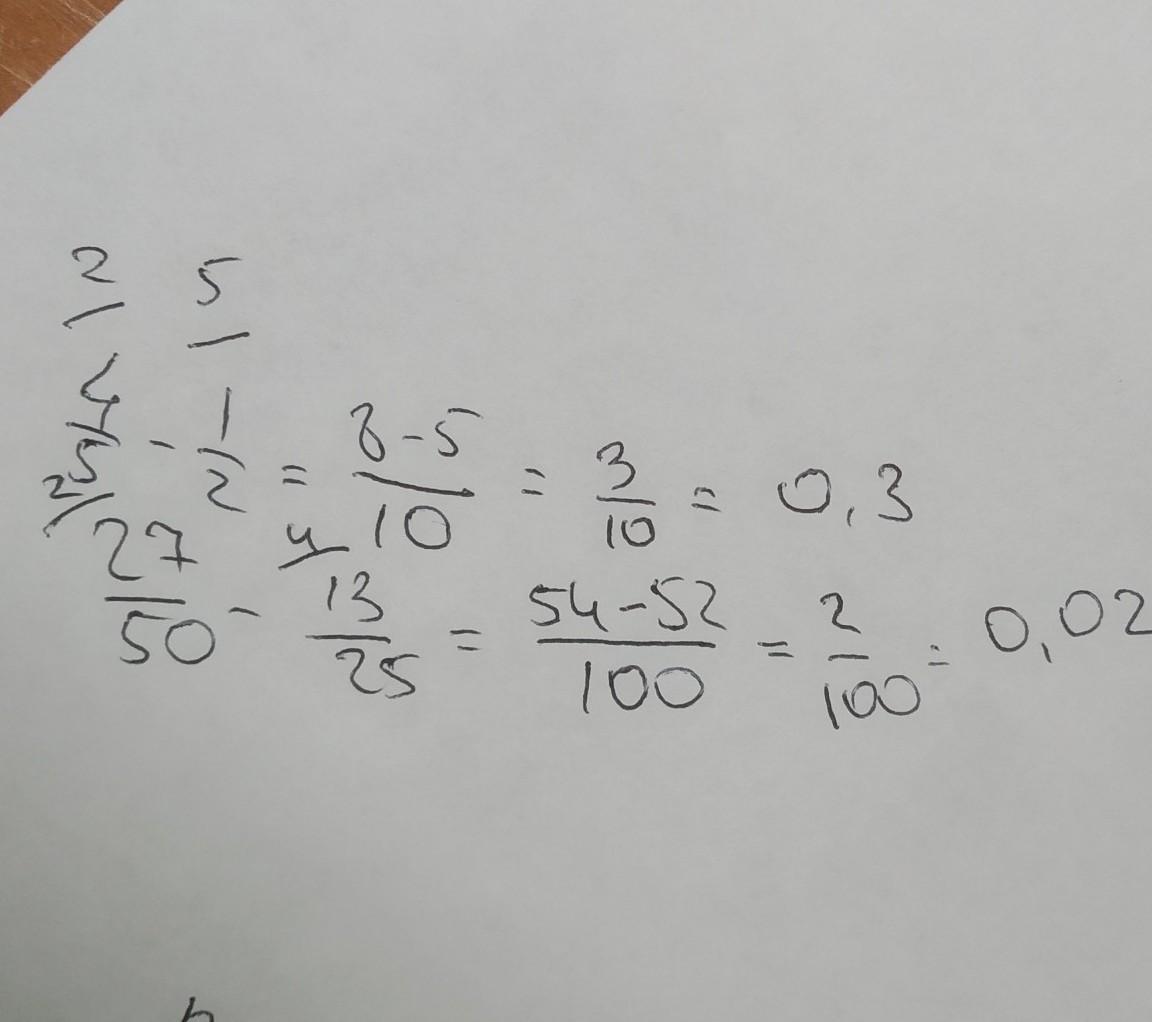 2/ 5/
4/5 - 1/2 = 8-5/10 = 3/10 = 0,3
2/ 27/50 - 4/ 13/25 = 54-52/100 = 2/100 = 0,02